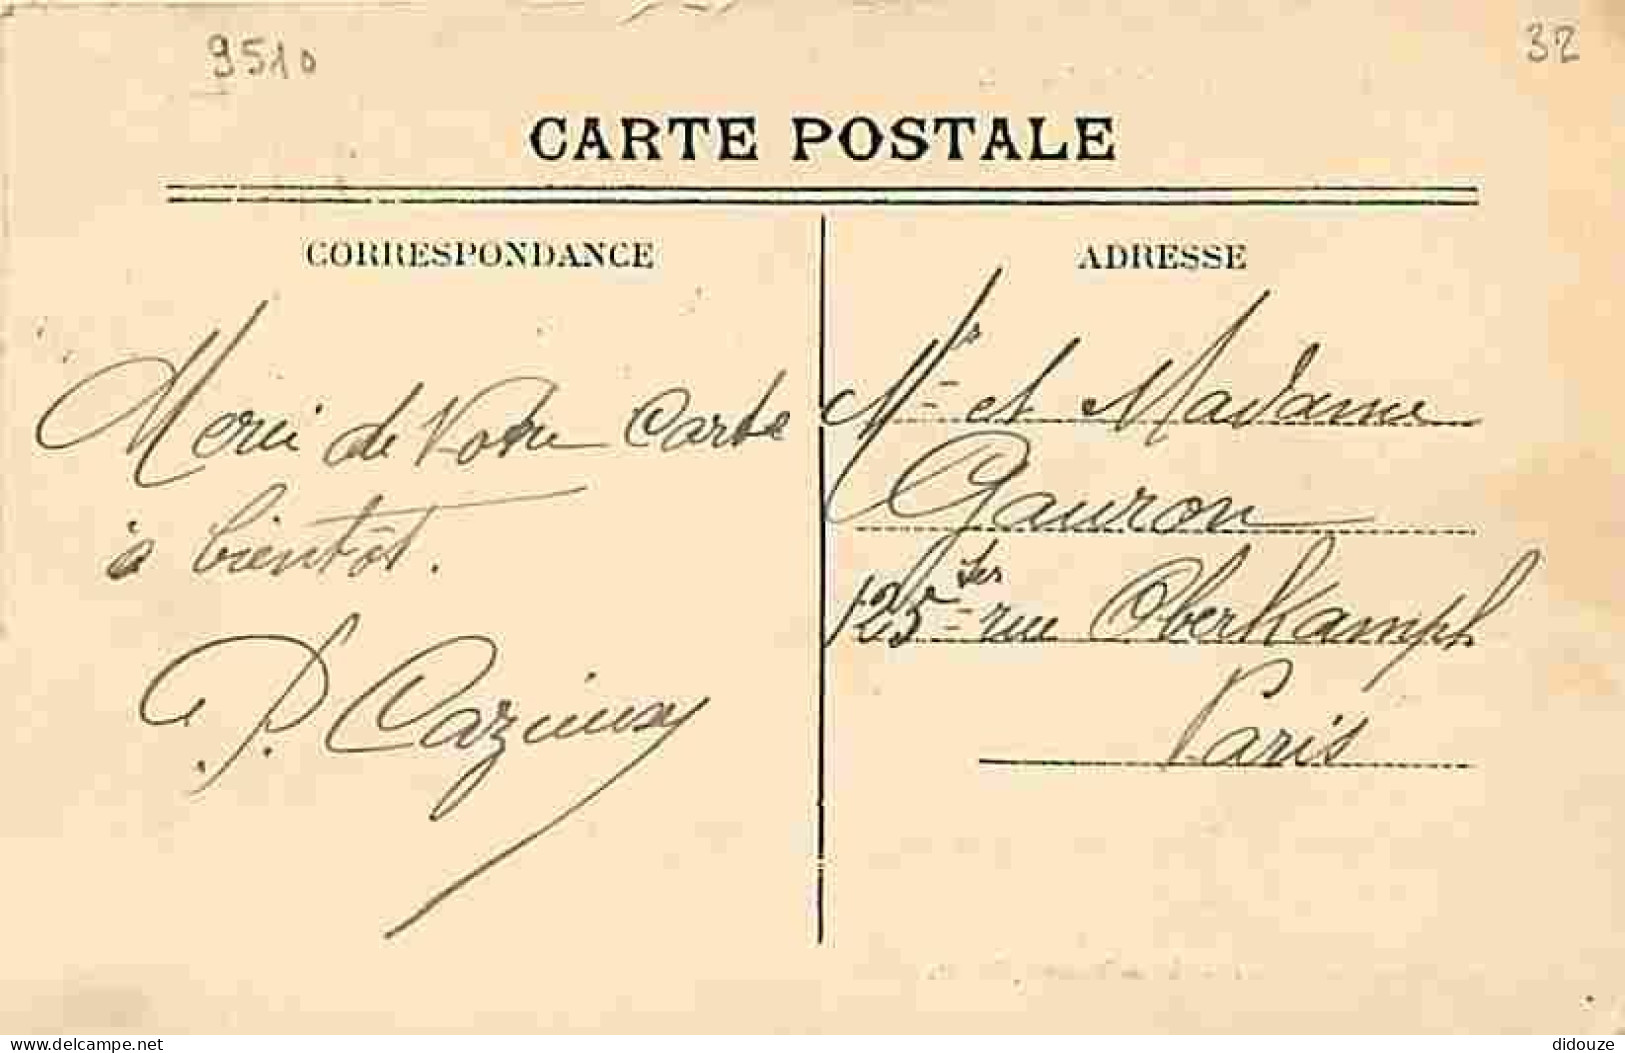 9510
32
CARTE POSTALE
CORRESPONDANCE
Merci de Votre Carte
à bientôt.
P. Cazieux
ADRESSE
Mr et Madame
Gauron
125 ter rue Oberkampf
Paris
www.delcampe.net
didouze